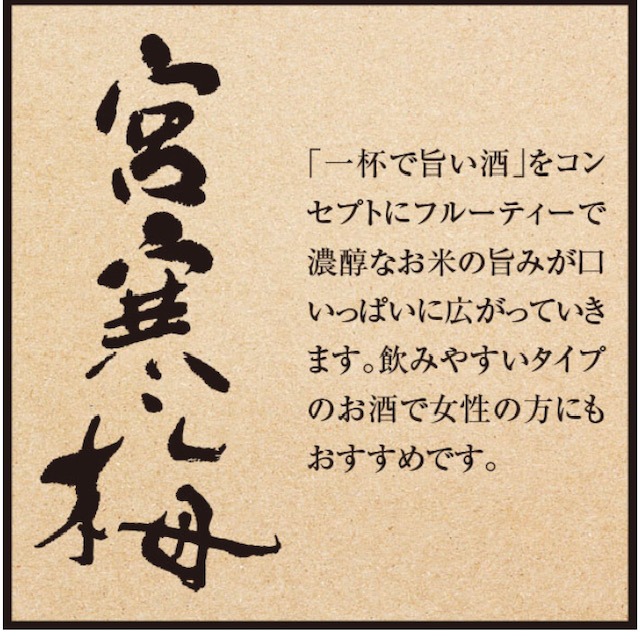 宮寒梅
「一杯で旨い酒」をコン
セプトにフルーティーで
濃醇なお米の旨みが口
いっぱいに広がっていき
ます。飲みやすいタイプ
のお酒で女性の方にも
おすすめです。